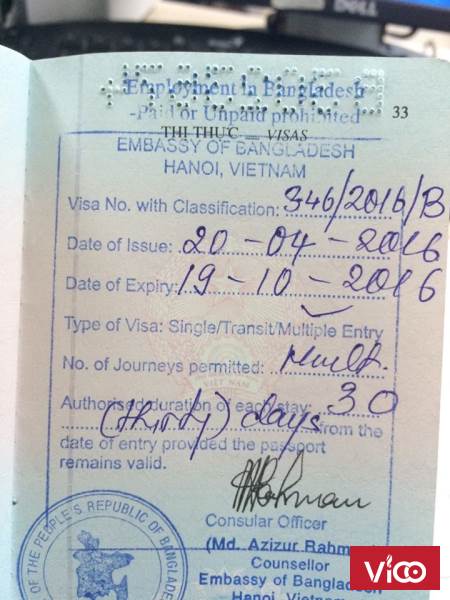 DELL
Employment in Bangladesh
-Paid or Unpaid prohibited
33
THỊ THỰC — VISAS
EMBASSY OF BANGLADESH
HANOI, VIETNAM
Visa No. with Classification: 346/2016/B
Date of Issue: 20-04-2016
Date of Expiry: 19-10-2016
Type of Visa: Single/Transit/Multiple Entry
No. of Journeys permitted: Mult.
Authorised duration of each stay: 30
(thirty) days from the
date of entry provided the passport
remains valid.
VIET NAM
Rahman
Consular Officer
(Md. Azizur Rahm
Counsellor
Embassy of Bangladesh
Hanoi, Vietnam
OF THE PEOPLE'S REPUBLIC OF BANGLADES
VICO